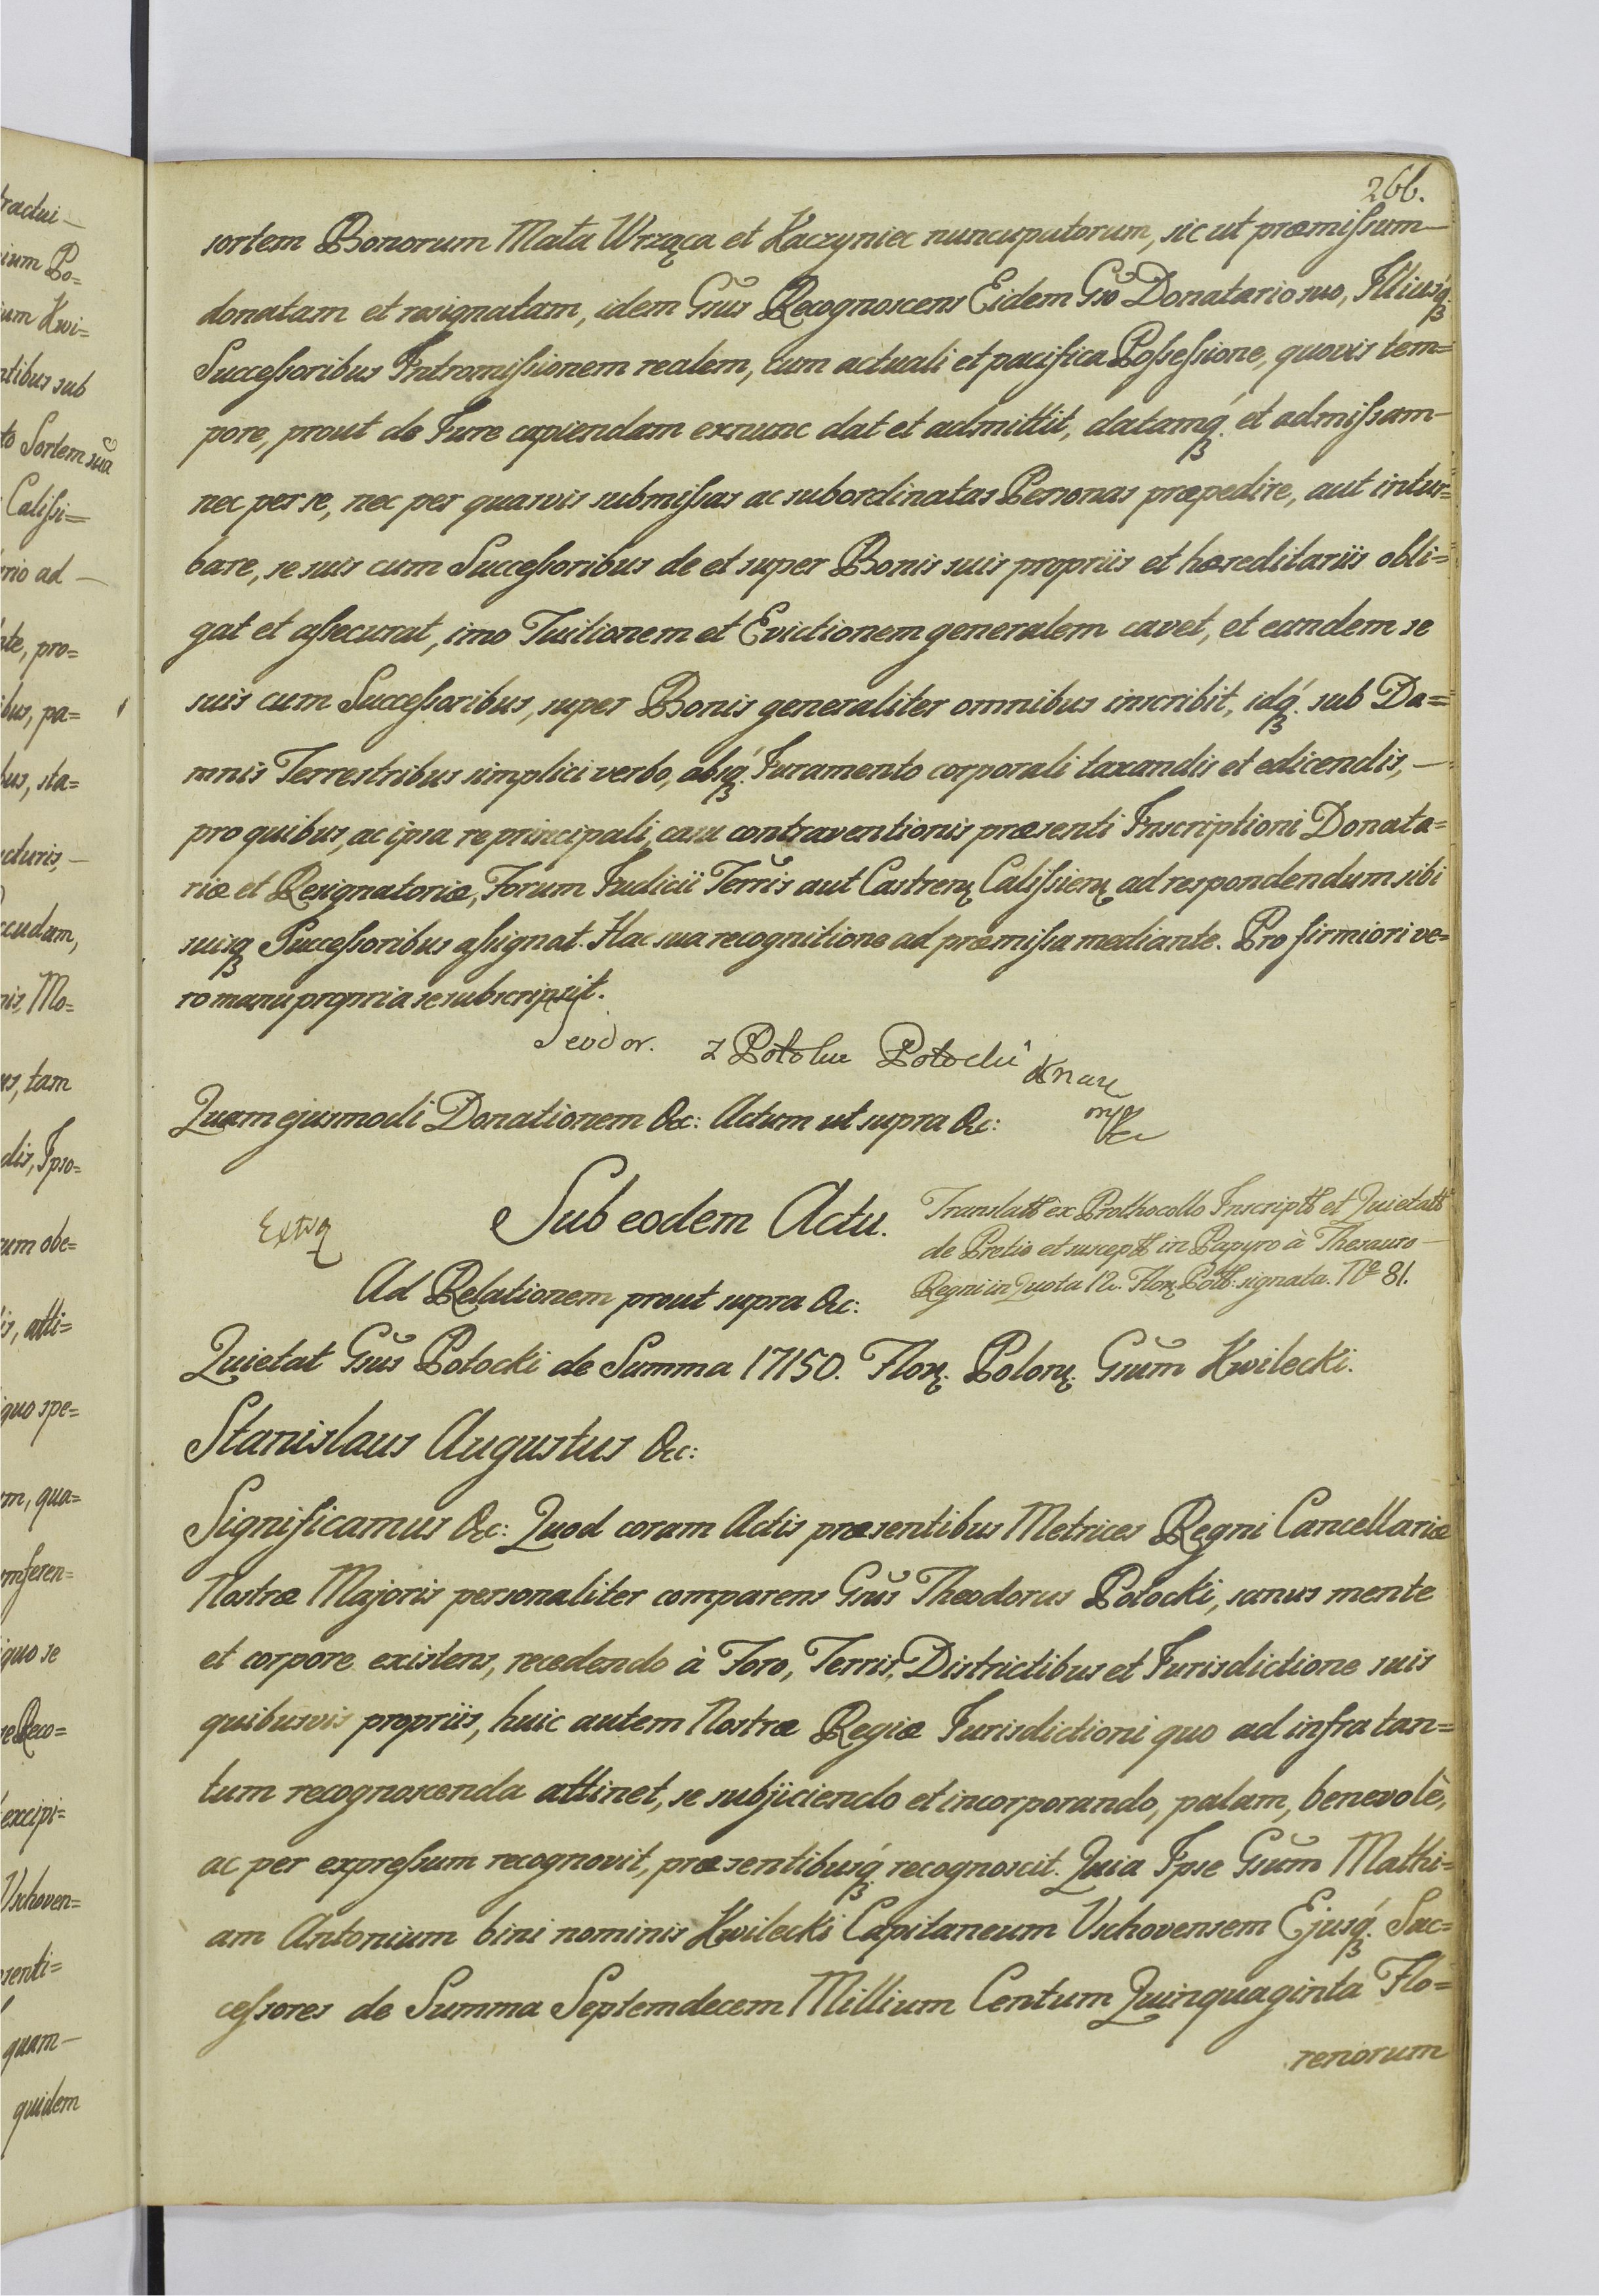 266.
sortem Bonorum Mała Wrząca et Kaczyniec nuncupatorum, sic ut præmissum —
donatam et resignatam, idem Gsus Recognoscens Eidem Gso Donatario suo, Illiusq́3
Successoribus Intromissionem realem, cum actuali et pacifica Possessione, quovis tem=
pore, prout de Jure capiendam exnunc dat et admittit, datamq́3. et admissam —
nec per se, nec per quasvis submissas ac subordinatas Personas præpedire, aut intur=
bare, se suis cum Successoribus de et super Bonis suis propriis et hæreditariis obli=
gat et assecurat, imo Tuitionem et Evictionem generalem cavet, et eandem se
suis cum Successoribus, super Bonis generaliter omnibus inscribit, idq́3. sub Da=
mnis Terrestribus simplici verbo, absq́3. Juramento corporali taxandis et edicendis, —
pro quibus, ac ipsa re principali, casu contraventionis præsenti Inscriptioni Donato=
riæ et Resignatoriæ, Forum Judicii Terris aut Castren Calissien ad respondendum sibi
suisq3 Successoribus assignat. Hac sua recognitione ad præmissa mediante. Pro firmiori ve=
ro manu propria se subscripsit.
Teodor. z Potoka Potocki
Quam ejusmodi Donationem &c: Actum ut supra &c:
Sub eodem Actu.
Translatt ex Prothocollo Inscriptt et Quietatt
de Pretio et susceptt in Papyro à Thesauro —
Regni in Quota 12. Flor Poltt: signata. No 81.
Extrq
Ad Relationem prout supra &c:
Quietat Gsus Potocki de Summa 17150. Flor. Polon. Gsum Kwilecki.
Stanislaus Augustus &c:
Significamus &c: Quod coram Actis præsentibus Metrices Regni Cancellariæ
Nostræ Majoris personaliter comparens Gsus Theodorus Potocki, sanus mente
et corpore existens, recedendo à Foro, Terris, Districtibus et Jurisdictione suis
quibusvis propriis, huic autem Nostræ Regiæ Jurisdictioni quo ad infra tan=
tum recognoscenda attinet, se subjiciendo et incorporando, palam, benevolè,
ac per expressum recognovit, præsentibusq́3 recognoscit. Quia Ipse Gsum Mathi=
am Antonium bini nominis Kwilecki Capitaneum Vschovensem Ejusq́3. Suc=
cessores de Summa Septemdecem Millium Centum Quinquaginta Flo=
renorum